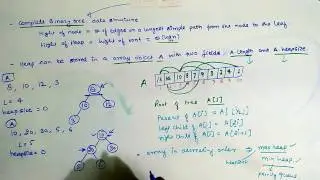 - Complete Binary tree data structure
Hight of node = # of edges on a longest simple path from the node to the leaf
Hight of heap = hight of root =
- Heap can be stored in a array object A with two fields / A.length and A.heapsize
A
8, 10, 12, 3
L = 4
heapsize = 0
A
10, 20, 30, 5, 6
L = 5
heapsize = 0
A
Root of tree A[1]
Parent of A[i] = A[i/2]
left child of A[i] = A[2i]
right child of A[i] = A[2i+1]
- array in decreasing order
heapsize
max heap
min heap